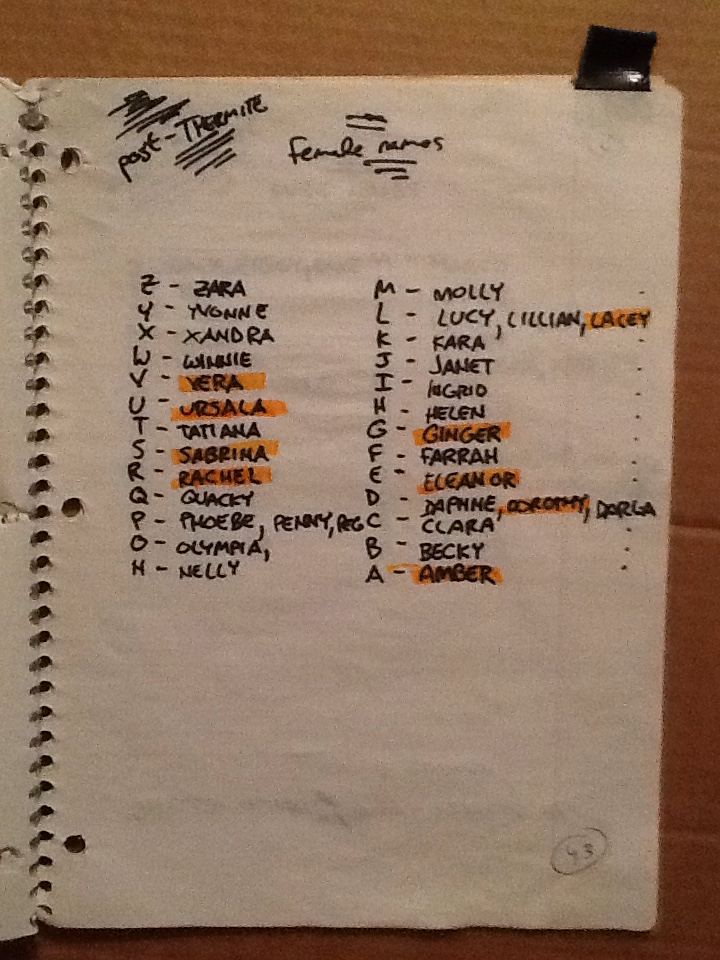 post-THERMITE
female names
Z - ZARA
Y - YVONNE
X - XANDRA
W - WINNIE
V - VERA
U - URSALA
T - TATIANA
S - SABRINA
R - RACHEL
Q - QUACKY
P - PHOEBE, PENNY, REG
O - OLYMPIA,
N - NELLY
M - MOLLY
L - LUCY, LILLIAN, LACEY
K - KARA
J - JANET
I - INGRID
H - HELEN
G - GINGER
F - FARRAH
E - ELEANOR
D - DAPHNE, DOROTHY, DARLA
C - CLARA
B - BECKY
A - AMBER
43